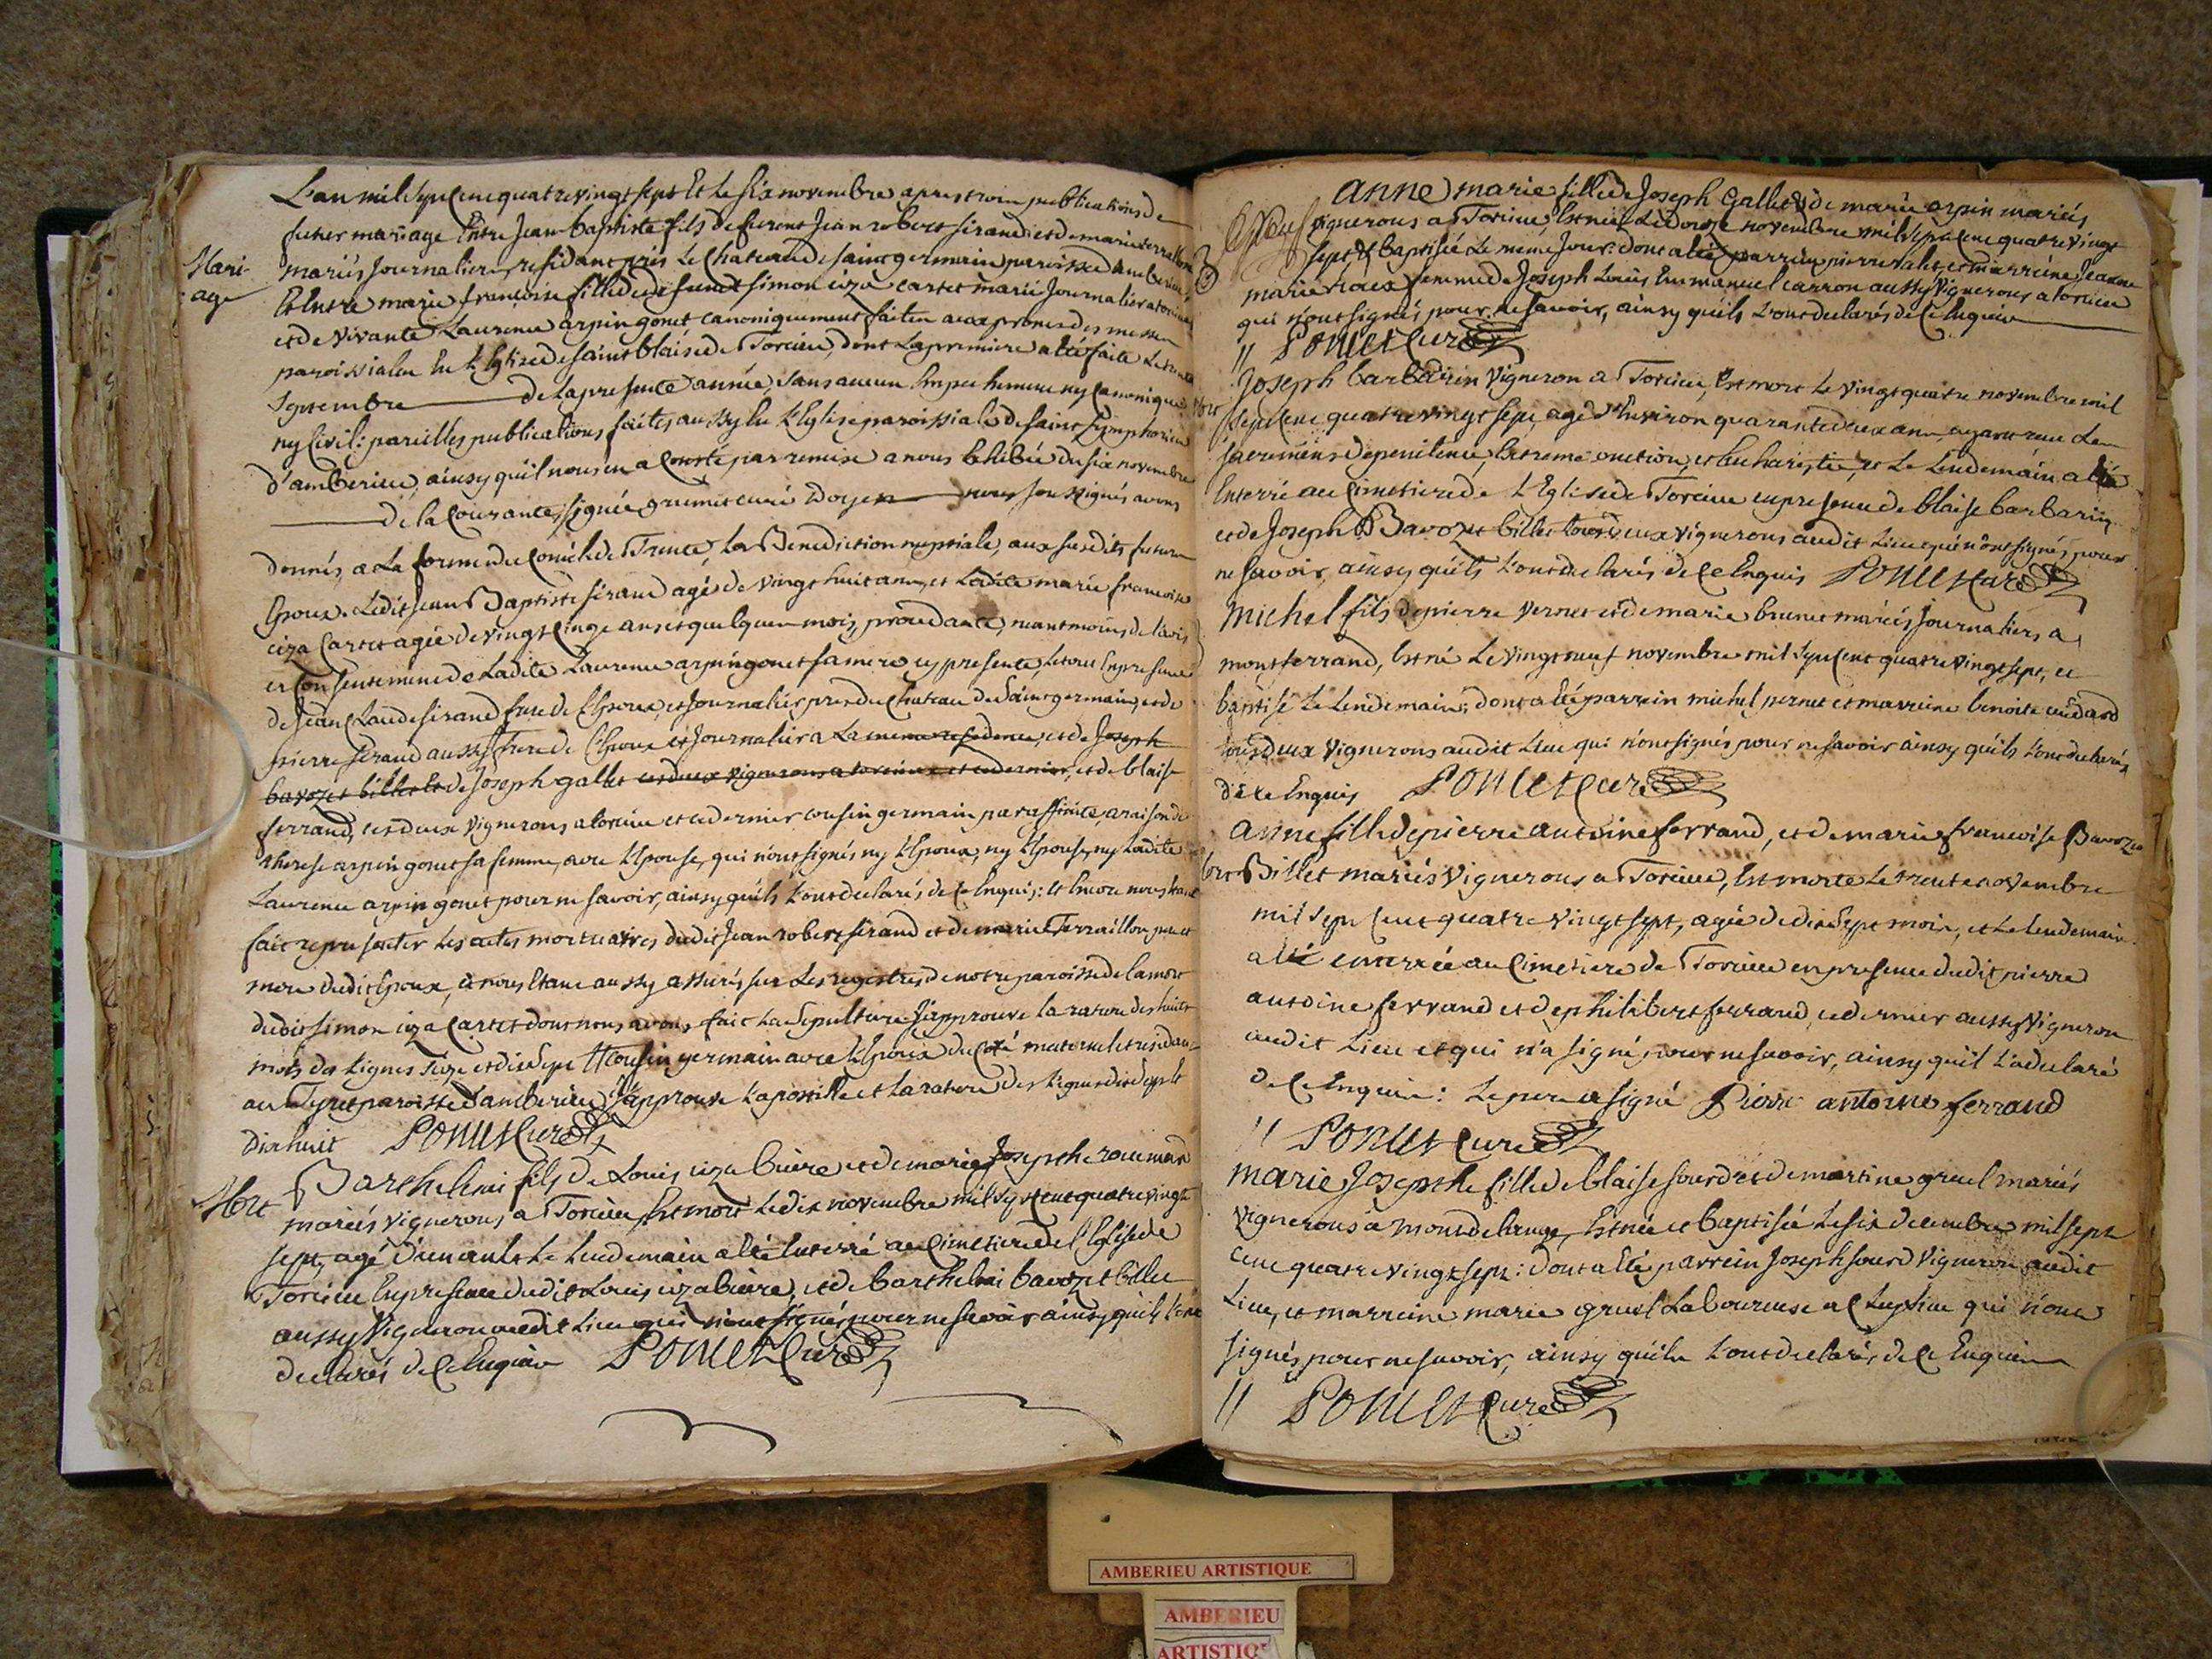 L'an mil sept cent quatre vingt sept Et le six novembre apres trois publications de
futur mariage Entre Jean baptiste fils de furent Jean robert sirand et de marie terraillon
Mari-
age
mariés Journaliers residant près Le Chateau de saint germain paroisse d'amberieu,
Et Entre marie françoise fille de defunct simon iiza cartet marié Journalier a torcieu
et de vivante Laurence arpin gonet canoniquement faites aux prones des messes
paroissiales En L'Eglise de saint blaise de Torcieu, dont La premiere a été faite Le trente
septembre de La presente année, sans aucun Empechement ny Canonique
ny Civil: pareilles publications faites aussy En L'Eglise paroissiale de saint Symphorien
d'amberieu, ainsy qu'il nous en a Consté par remise a nous Exhibée du six novembre
de la Courante, signée grumet curé nous soussignés avons
donnés, a La forme du Concile de Trente, La Benediction nuptiale, aux susdits futurs
Epoux. Ledit Jean Baptiste sirand agé de vingt huit ans, et Ladite marie françoise
iiza Cartet agée de vingt Cinq ans et quelques mois, procedante, neantmoins de l'avis
et Consentement de Ladite Laurence arpin gonet sa mere cy presente, Le tout En presence
de Jean Claude sirand frere de L'Epoux, et Journalier pres du Chateau de Saint germain, et de
pierre sirand aussy frere de L'Epoux et Journalier a La meme residence, et de Joseph
bavozet billet et de Joseph gallet ces deux vignerons a torcieu et ce dernier, et de blaise
ferrand, ces deux vignerons a torcieu et ce dernier cousin germain par affinité, a raison de
therese arpin gonet sa femme, avec L'Epouse, qui n'ont signés ny L'Epoux, ny L'Epouse, ny Ladite
Laurence arpin gonet pour ne savoir, ainsy qu'ils L'ont declarés de Ce Enquis: et Encore nous étant
fait representer Les actes mortuaires dudit Jean robert sirand et de marie Terraillon pere et
mere dudit Epoux, et nous Etant aussy assurés sur Les registres de notre paroisse de la mort
dudit simon iiza Cartet dont nous avons fait La Sepulture J'approuve la rature des huits
mots des Lignes Seize et dix Sept # Cousin germain avec L'Epoux du Coté maternel et residant
au Tyret paroisse d'amberieu J'approuve L'apostille et La rature des Lignes dix Sept et
dix huit PONCET Curé
Mort
Barthelemi fils de Louis iiza buire et de marie Josephe roumand
mariés vignerons a Torcieu, Est mort Le dix novembre mil sept cent quatre vingt
sept, agé d'un an et Le Lendemain a été Enterré au Cimetiere de L'Eglise de
Torcieu En presence dudit Louis iiza buire, et de barthelemi bavozet billet
aussy vigneron audit Lieu qui n'ont signés pour ne savoir ainsy qu'ils L'ont
declarés de Ce Enquis PONCET Curé
anne marie fille de Joseph Gallet et de marie arpin mariés
vignerons a Torcieu, Est née Le douze novembre mil sept Cent quatre vingt
sept, et baptisée Le meme Jour: dont a été parrein pierre et marreine Jeanne
marie roux femme de Joseph Louis Emmanuel carron aussy vignerons a torcieu
qui n'ont signés pour ne savoir, ainsy qu'ils L'ont declarés de Ce Enquis
// PONCET Curé
Mort
Joseph barbarin vigneron a Torcieu, Est mort Le vingt quatre novembre mil
sept Cent quatre vingt sept, agé d'Environ quarante deux ans, ayant recu Les
sacremens de penitence, Extreme onction, et Eucharistie, et Le Lendemain a été
Enterré au Cimetiere de L'Eglise de Torcieu en presence de blaise barbarin
et de Joseph Bavozet billet tous deux vignerons audit Lieu qui n'ont signés pour
ne savoir, ainsy qu'ils L'ont declarés de Ce Enquis PONCET Curé
Michel fils de pierre vernet et de marie brunet mariés Journaliers a
montferrand, Est né Le vingt neuf novembre mil sept Cent quatre vingt sept, et
baptisé Le Lendemain: dont a été parrein michel pernet et marreine benoite
tous deux vignerons audit Lieu qui n'ont signés pour ne savoir ainsy qu'ils L'ont declarés
de Ce Enquis PONCET Curé
Mort
anne fille de pierre antoine ferrand, et de marie françoise Bavozet
Billet mariés vignerons a Torcieu, Est morte Le trente novembre
mil Sept Cent quatre vingt sept, agée de dix Sept mois, et Le Lendemain
a été enterrée au Cimetiere de Torcieu en presence dudit pierre
antoine ferrand et de philibert ferrand, ce dernier aussy vigneron
audit Lieu et qui n'a signé, pour ne savoir, ainsy qu'il L'a declaré
de Ce Enquis: Le pere a signé Pierre antoine ferrand
// PONCET Curé
Marie Josephe fille de blaise sourd et de martine gruel mariés
vignerons a montdelange, Est née et baptisée Le six decembre mil sept
Cent quatre vingt sept: dont a été parrein Joseph sourd vigneron audit
Lieu, et marreine marie gruel Laboureuse a qui n'ont
signés pour ne savoir, ainsy qu'ils L'ont declarés de Ce Enquis
// PONCET Curé
AMBERIEU ARTISTIQUE
AMBERIEU
ARTISTIQ